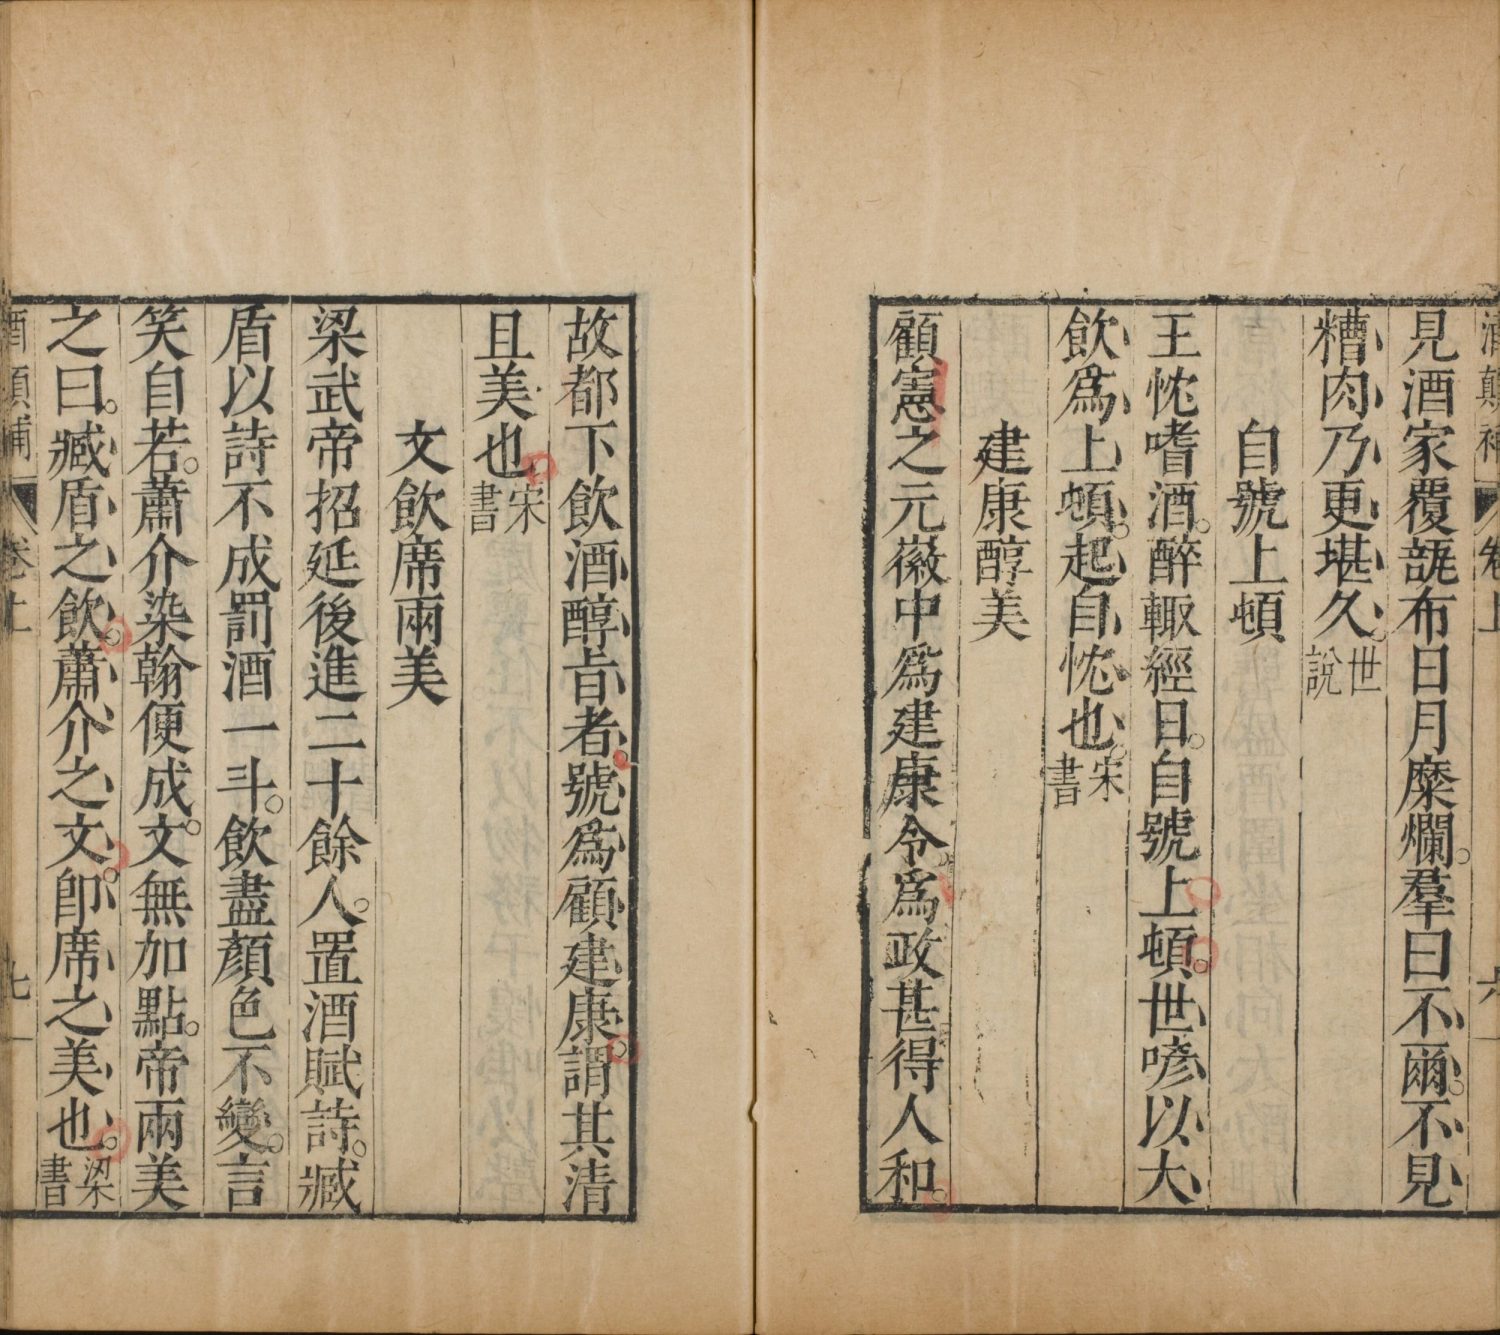 酒顛補 卷上 六
見酒家覆瓿布日月糜爛。羣曰不爾。不見
糟肉乃更堪久。世說
自號上頓
王忱嗜酒。醉輙經日。自號上頓。世喭以大
飲爲上頓。起自忱也。宋書
建康醇美
顧憲之元徽中爲建康令。爲政甚得人和。
故都下飲酒醇旨者。號爲顧建康。謂其清
且美也。宋書
文飲席兩美
梁武帝招延後進二十餘人。置酒賦詩。臧
盾以詩不成罰酒一斗。飲盡顏色不變。言
笑自若。蕭介染翰便成。文無加點。帝兩美
之曰。臧盾之飲。蕭介之文。卽席之美也。梁書
酒顛補 卷上 七